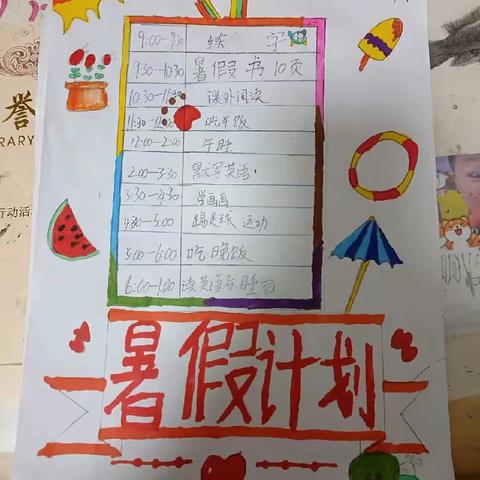 9:00—9:30 练 字
9:30—10:30 暑假书10页
10:30—11:30 课外阅读
11:30—12:00 吃午饭
12:00—2:00 午睡
2:00—3:30 默写英语
3:30—4:30 学画画
4:30—5:00 踢足球 运动
5:00—6:00 吃晚饭
6:00—7:00 读英语后睡前
暑假计划
誉
RARY
行动活